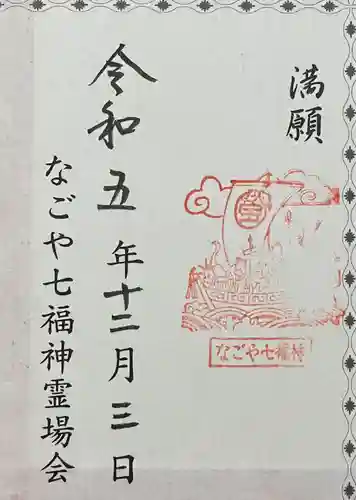 満願
令和五年十二月三日
なごや七福神霊場会
なごや七福神